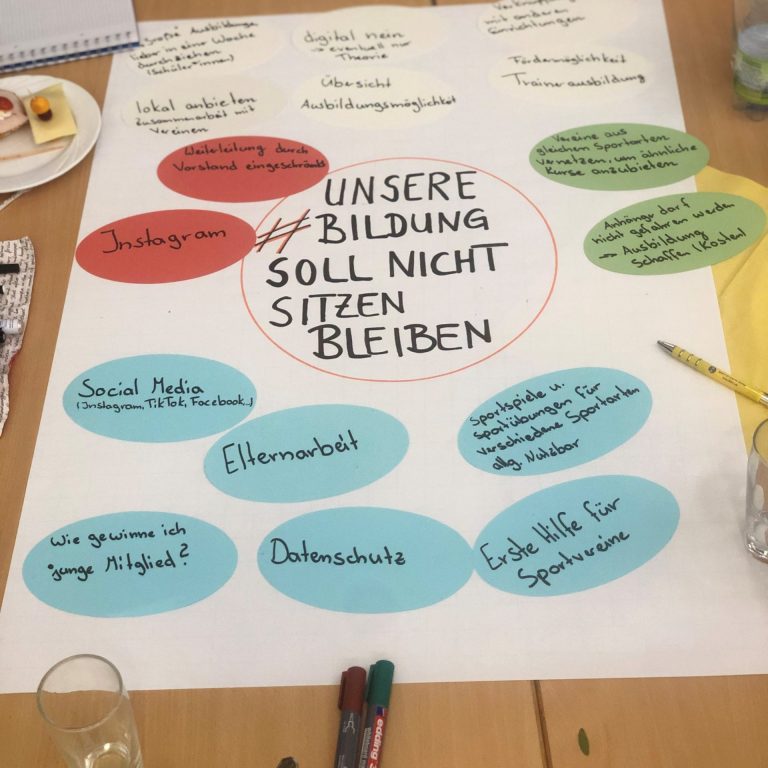 Große Ausbildunge
lieber in einer Woche
durchziehen
(Schüler*innen)
digital nein
→ eventuell nur
Theorie
mit anderen
Einrichtungen
lokal anbieten
Zusammenarbeit mit
Vereinen
Übersicht
Ausbildungsmöglichkeit
Fördermöglichkeit
Trainerausbildung
Weiterleitung durch
Vorstand eingeschränkt
Instagram
UNSERE
#BILDUNG
SOLL NICHT
SITZEN
BLEIBEN
Vereine aus
gleichen Sportarten
vernetzen, um ähnliche
Kurse anzubieten
Anhänger darf
nicht gefahren werden
→ Ausbildung
schaffen (Kosten)
Social Media
(Instagram, TikTok, Facebook...)
Elternarbeit
Sportspiele u.
Sportübungen für
verschiedene Sportarten
allg. Nutzbar
Wie gewinne ich
junge Mitglied?
Datenschutz
Erste Hilfe für
Sportvereine
edding